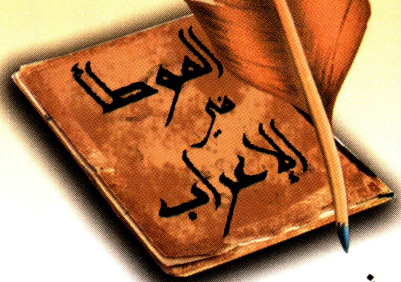 الموطأ
في
الإعراب